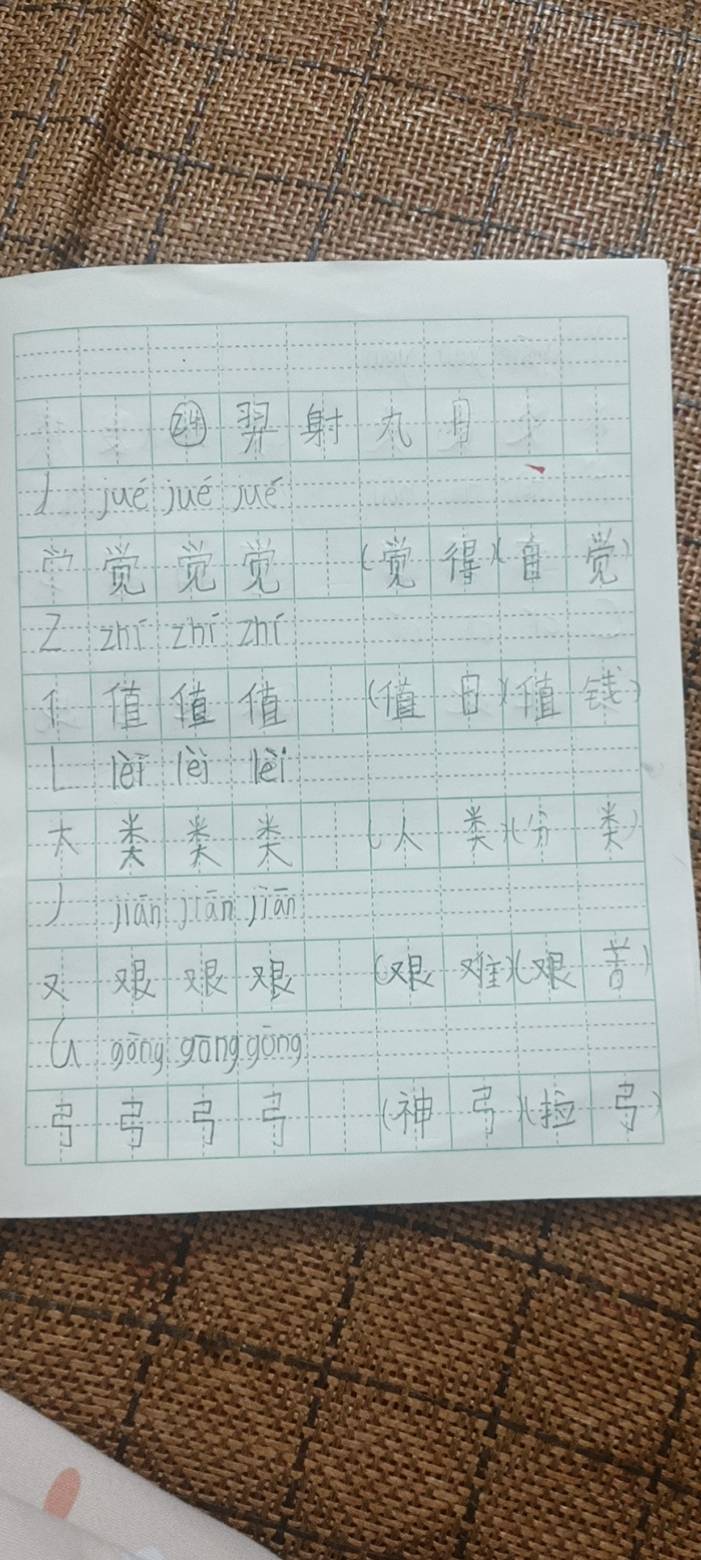 ㉔ 羿 射 九 日
J jué jué jué
⺍ 觉 觉 觉 (觉 得)(自 觉)
Z zhí zhí zhí
亻 值 值 值 (值 日)(值 钱)
L lèi lèi lèi
大 类 类 类 (人 类)(分 类)
J jiān jiān jiān
又 艰 艰 艰 (艰 难)(艰 苦)
G gōng gōng gōng
弓 弓 弓 弓 (神 弓)(拉 弓)